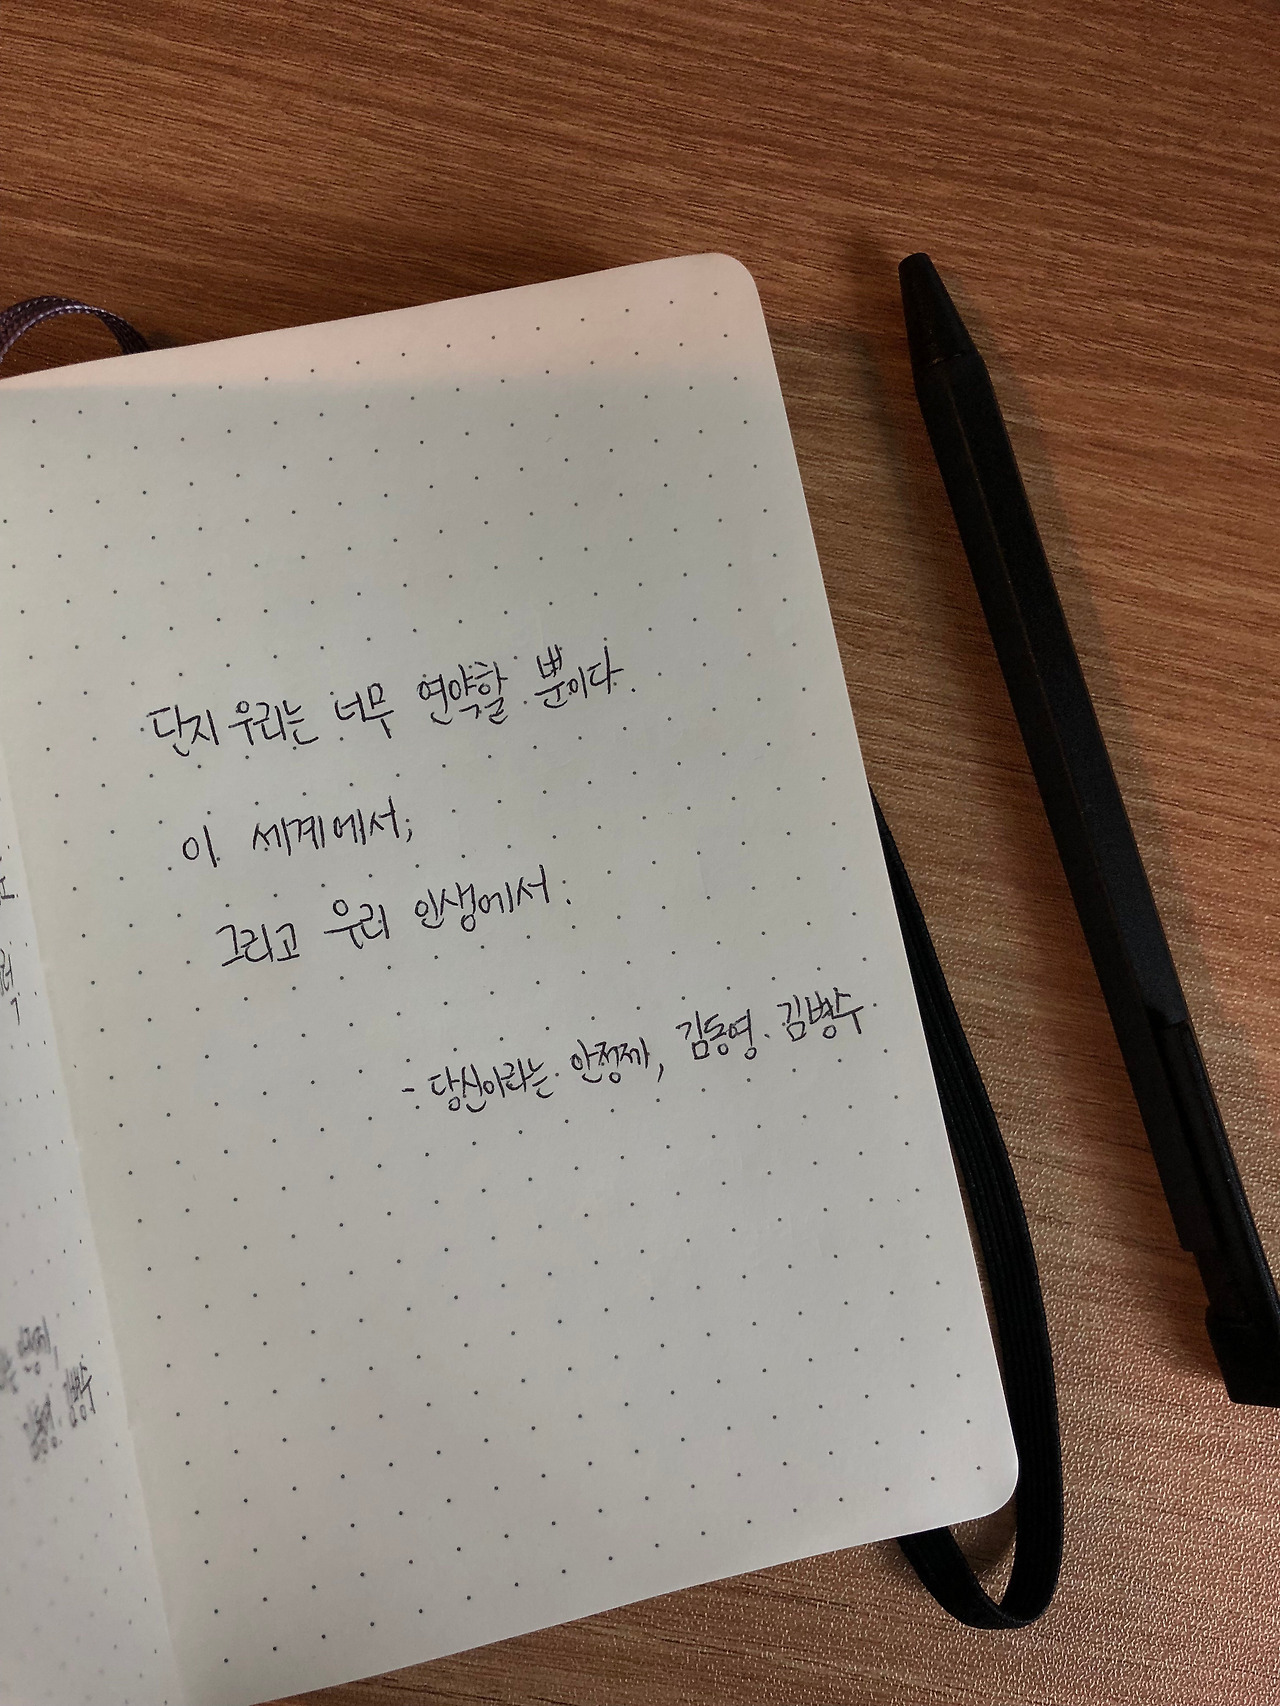 단지 우리는 너무 연약할 뿐이다.
이 세계에서,
그리고 우리 인생에서.
- 당신이라는 안정제, 김동영. 김병수
김동영. 김병수